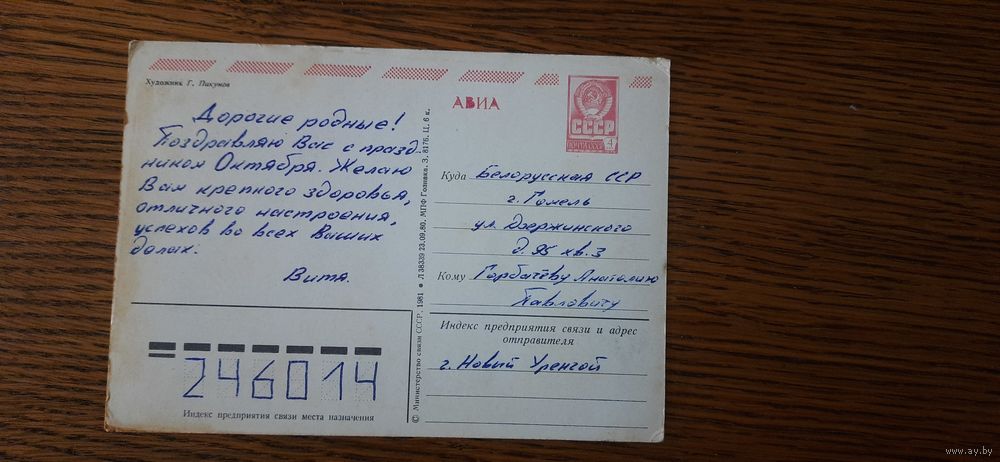 Художник Г. Пикунов
АВИА
СССР
4
Дорогие родные!
Поздравляю Вас с празд-
ником Октября. Желаю
Вам крепкого здоровья,
отличного настроения,
успехов во всех Ваших
делах.
Витя.
246014
Индекс предприятия связи места назначения
© Министерство связи СССР, 1981 ● Л 38339 23.09.80. МПФ Гознака. З. 8176. Ц. 6 к.
Куда Белорусская ССР
г. Гомель
ул. Дзержинского
д. 95 кв. 3
Кому Горбачёву Анатолию
Павловичу
Индекс предприятия связи и адрес
отправителя
г. Новый Уренгой
www.ay.by